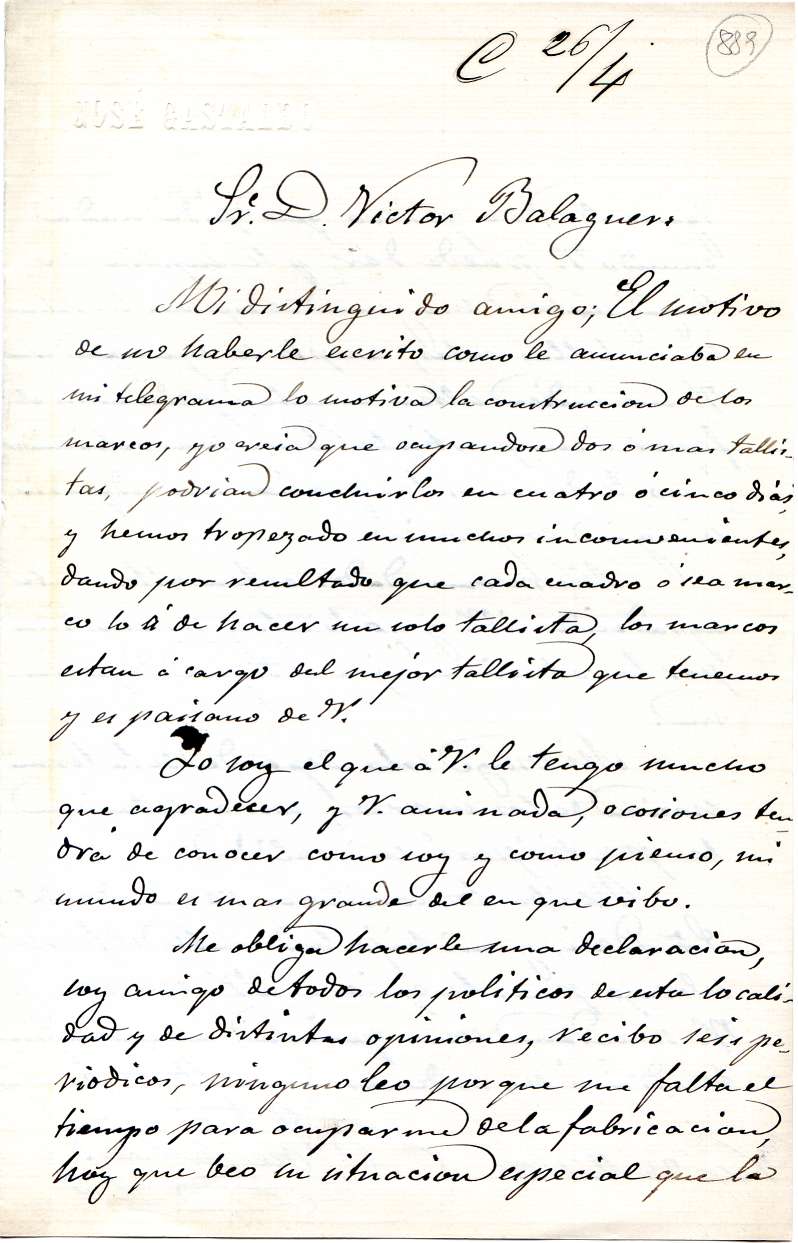 C 26/4
889
JOSÉ GASTALDO
Sr. D. Victor Balaguer.
Mi distinguido amigo; El motivo
de no haberle escrito como le anunciaba en
mi telegrama lo motiva la construccion de los
marcos, yo creia que ocupandose dos ó mas tallis-
tas, podrian concluirlos en cuatro ó cinco dias,
y hemos tropezado en muchos inconvenientes,
dando por resultado que cada cuadro ó sea mar-
co lo á de hacer un solo tallista, los marcos
estan á cargo del mejor tallista que tenemos
y es paisano de V.
Yo soy el que á V. le tengo mucho
que agradecer, y V. a mi nada, ocosiones ten-
drá de conocer como soy y como pienso, mi
mundo es mas grande del en que vibo.
Me obliga hacerle una declaracion,
soy amigo de todos los politicos de esta locali-
dad y de distintas opiniones, recibo seis pe-
riodicos, ninguno leo porque me falta el
tiempo para ocuparme de la fabricacion,
hoy que beo su situacion especial que la